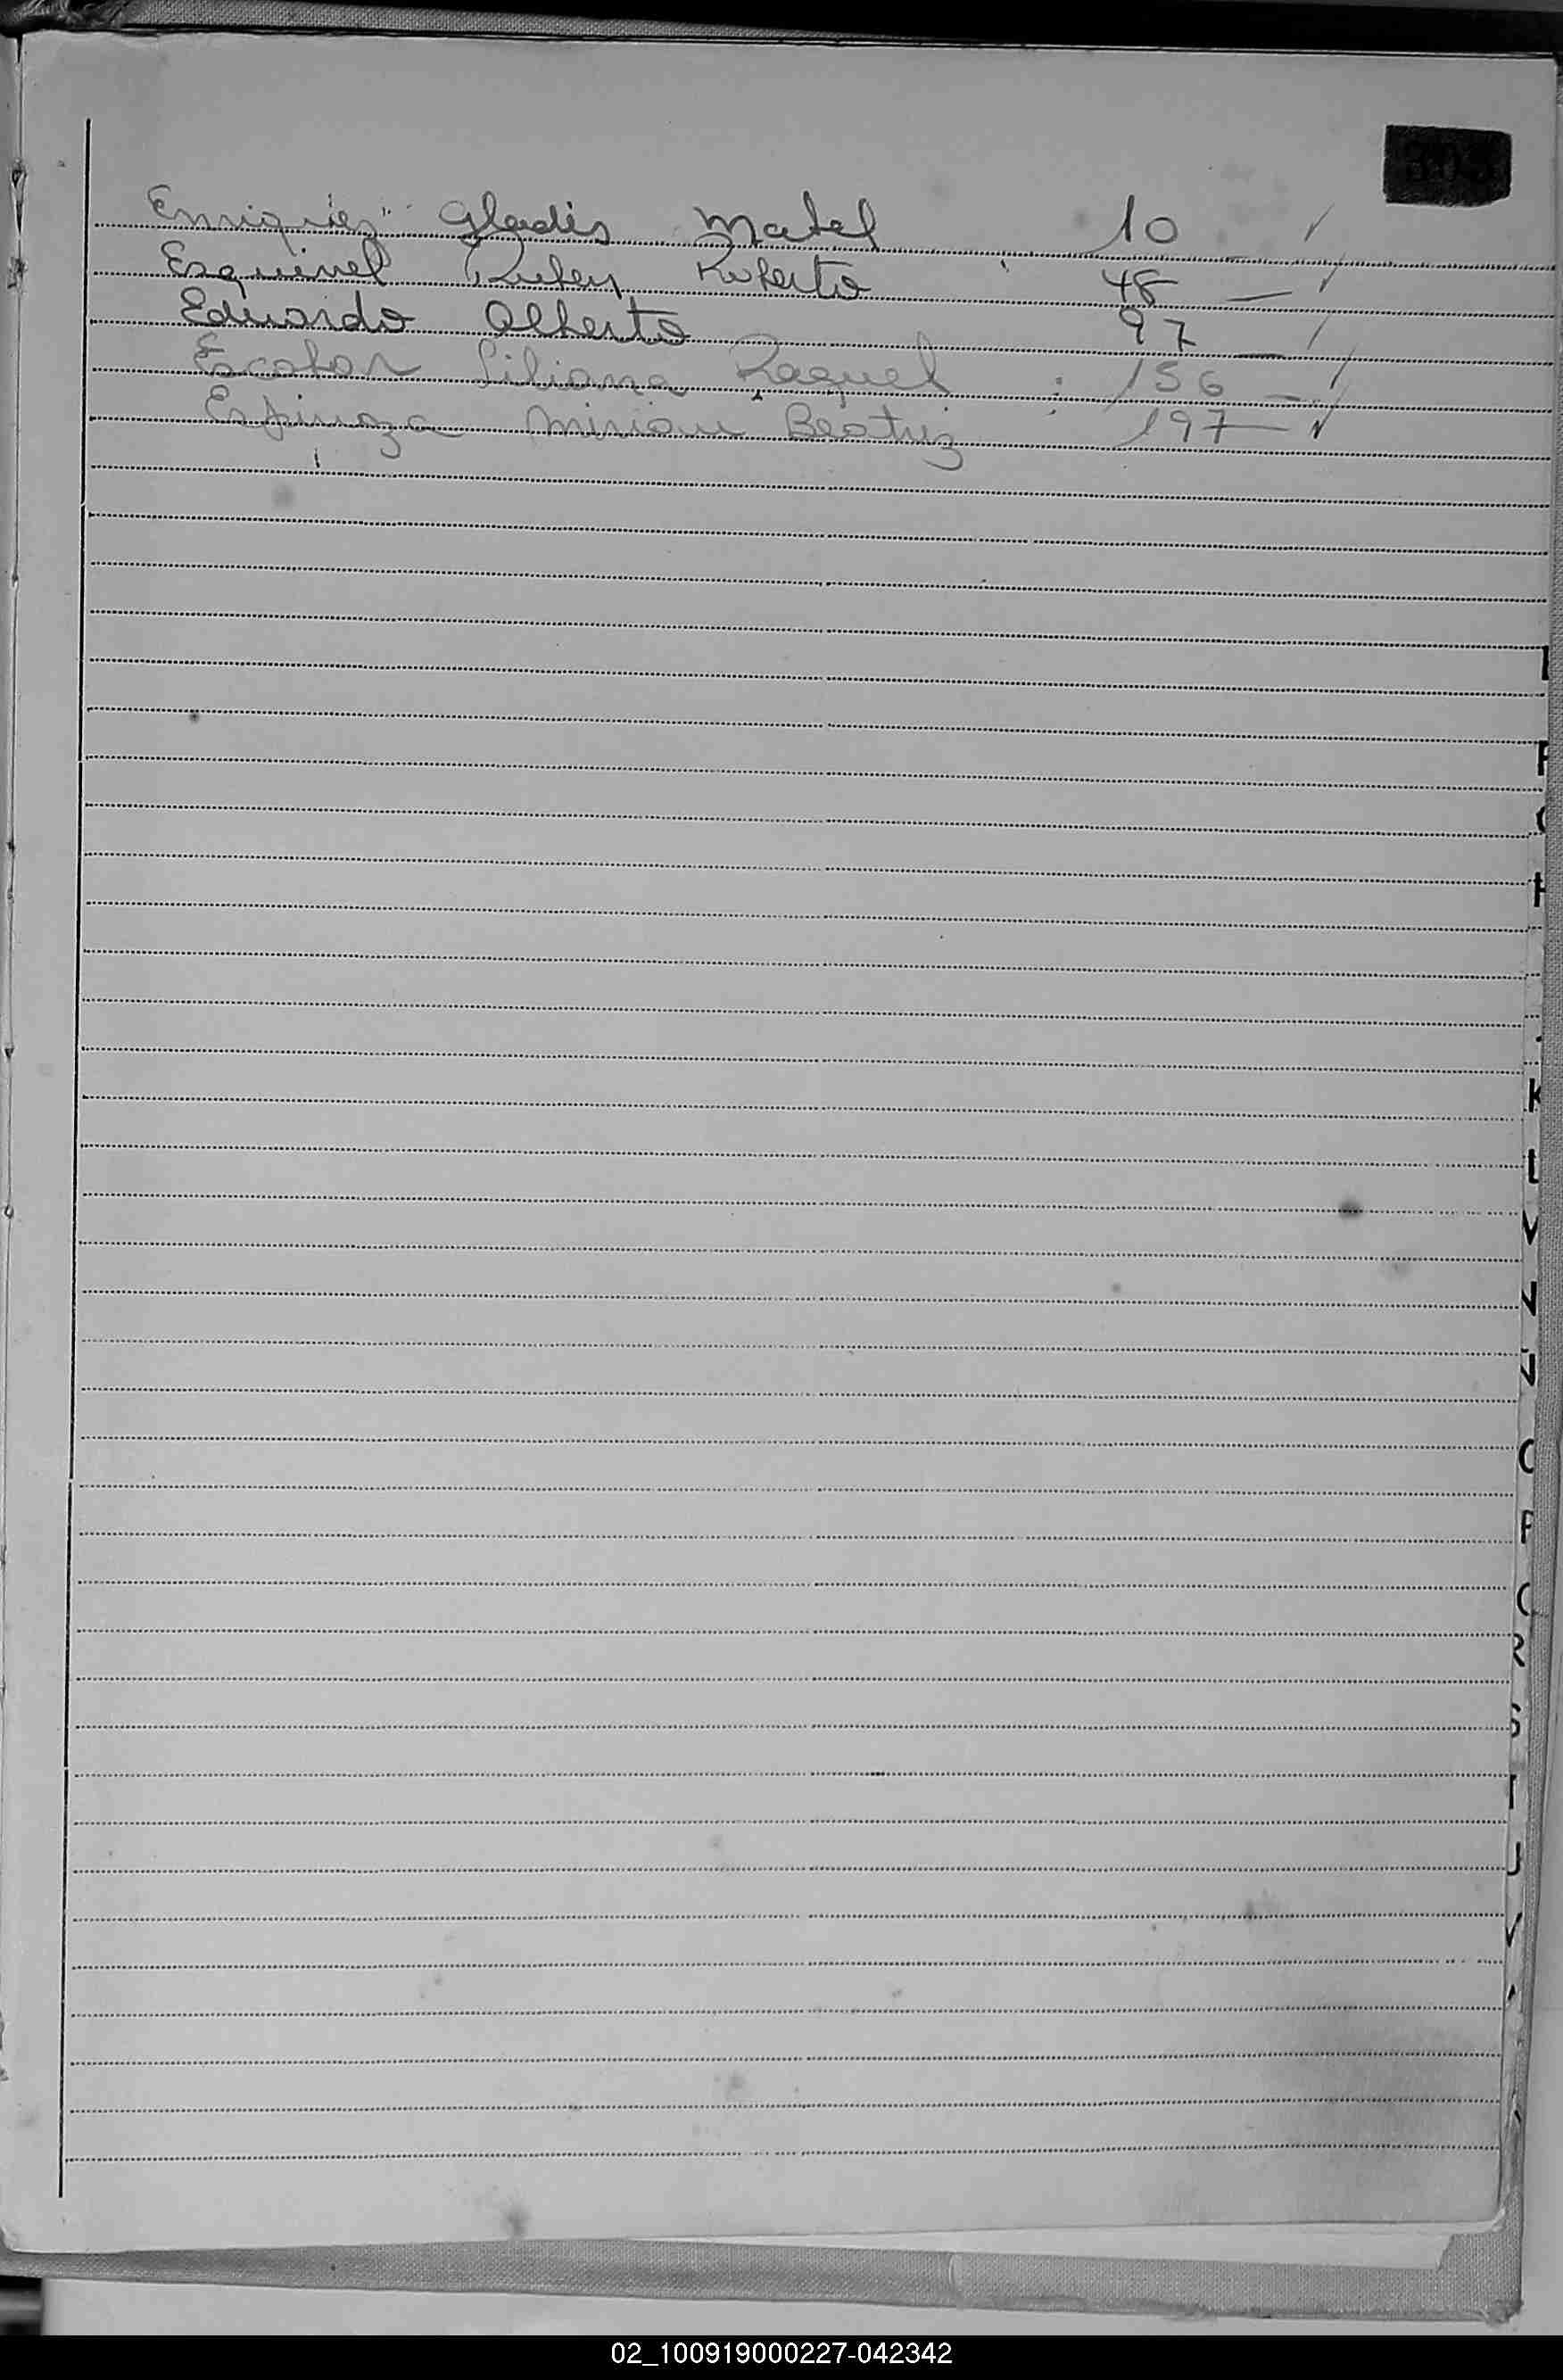 Enriquez Gladis Mabel 10 - ✓
Esquivel Ruben Roberto 48 - ✓
Eduardo Alberto 97 - ✓
Escobar Liliana Raquel : 156 - ✓
Espinoza Miriam Beatriz : 197 - ✓
K
L
N
P
R
S
T
U
V
02_100919000227-042342